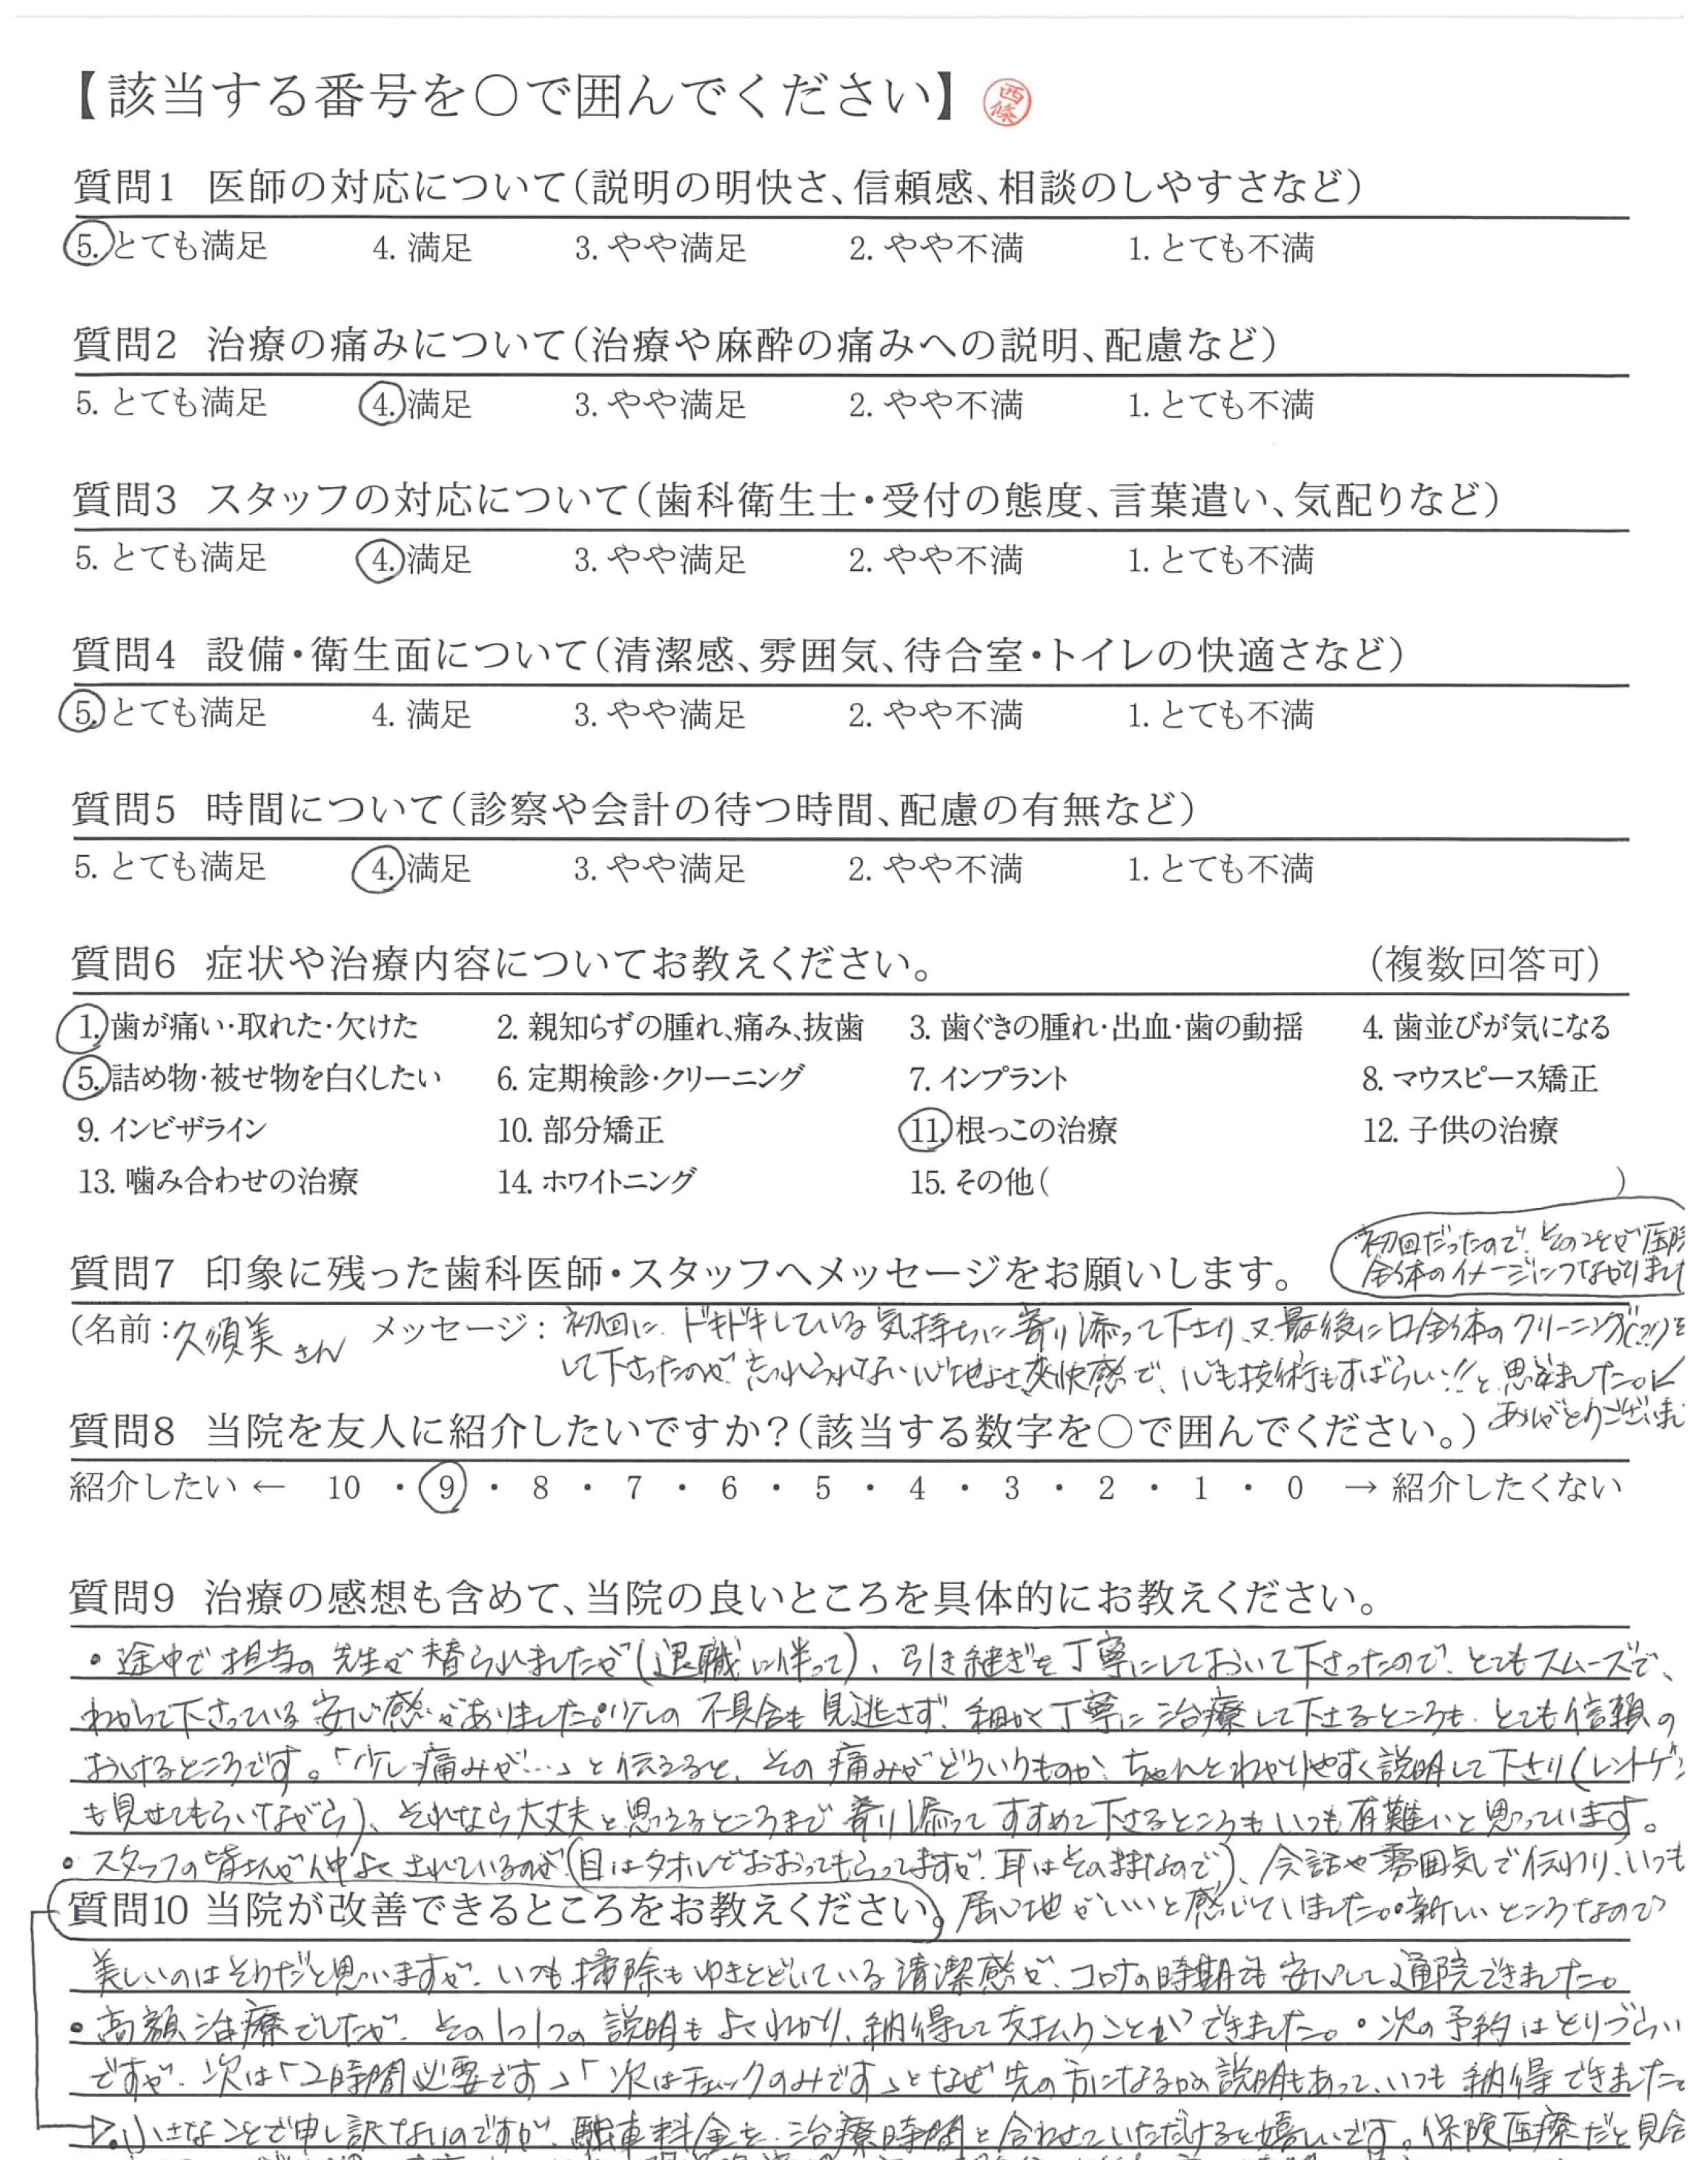 【該当する番号を○で囲んでください】 西條
質問1 医師の対応について(説明の明快さ、信頼感、相談のしやすさなど)
5. とても満足 4. 満足 3. やや満足 2. やや不満 1. とても不満
質問2 治療の痛みについて(治療や麻酔の痛みへの説明、配慮など)
5. とても満足 4. 満足 3. やや満足 2. やや不満 1. とても不満
質問3 スタッフの対応について(歯科衛生士・受付の態度、言葉遣い、気配りなど)
5. とても満足 4. 満足 3. やや満足 2. やや不満 1. とても不満
質問4 設備・衛生面について(清潔感、雰囲気、待合室・トイレの快適さなど)
5. とても満足 4. 満足 3. やや満足 2. やや不満 1. とても不満
質問5 時間について(診察や会計の待つ時間、配慮の有無など)
5. とても満足 4. 満足 3. やや満足 2. やや不満 1. とても不満
質問6 症状や治療内容についてお教えください。 (複数回答可)
1. 歯が痛い・取れた・欠けた 2. 親知らずの腫れ、痛み、抜歯 3. 歯ぐきの腫れ・出血・歯の動揺 4. 歯並びが気になる
5. 詰め物・被せ物を白くしたい 6. 定期検診・クリーニング 7. インプラント 8. マウスピース矯正
9. インビザライン 10. 部分矯正 11. 根っこの治療 12. 子供の治療
13. 噛み合わせの治療 14. ホワイトニング 15. その他( )
初回だったので、そのことが医院
全体のイメージにつながりまし
質問7 印象に残った歯科医師・スタッフへメッセージをお願いします。
(名前:久須美さん メッセージ: 初回に、ドキドキしている気持ちに寄り添って下さり、又、最後に口全体のクリーニング(?)を
して下さったのが、忘れられない心地よさ、爽快感で、心も技術もすばらしい!!と思いました。
ありがとうございま
質問8 当院を友人に紹介したいですか?(該当する数字を○で囲んでください。)
紹介したい ← 10 ・ 9 ・ 8 ・ 7 ・ 6 ・ 5 ・ 4 ・ 3 ・ 2 ・ 1 ・ 0 → 紹介したくない
質問9 治療の感想も含めて、当院の良いところを具体的にお教えください。
・途中で担当の先生が替られましたが(退職に伴って)、引き継ぎを丁寧にしておいて下さったので、とてもスムーズで、
わかって下さっている安心感がありました。少しの不具合も見逃さず、細かく丁寧に治療して下さるところも、とても信頼の
おけるところです。「少し痛みが…」と伝えると、その痛みがどういうものか、ちゃんとわかりやすく説明して下さり(レントゲン
も見せてもらいながら)、それなら大丈夫と思えるところまで寄り添ってすすめて下さるところもいつも有難いと思っています。
・スタッフの皆さんが仲よくされているのが(目はタオルでおおってもらってますが、耳はそのままなので)、会話や雰囲気で伝わり、いつも
質問10 当院が改善できるところをお教えください。 居心地がいいと感じていました。・新しいところなので
美しいのはそうだと思いますが、いつも掃除もゆきとどいている清潔感が、コロナの時期でも安心して通院できました。
・高額治療でしたが、その1つ1つの説明もよくわかり、納得して支払うことができました。・次の予約はとりづらい
ですが、次は「2時間必要です」「次はチェックのみです」となぜ先の方になるかの説明もあって、いつも納得できました
小さなことで申し訳ないのですが、駐車料金を、治療時間と合わせていただけると嬉しいです。保険医療だと見合